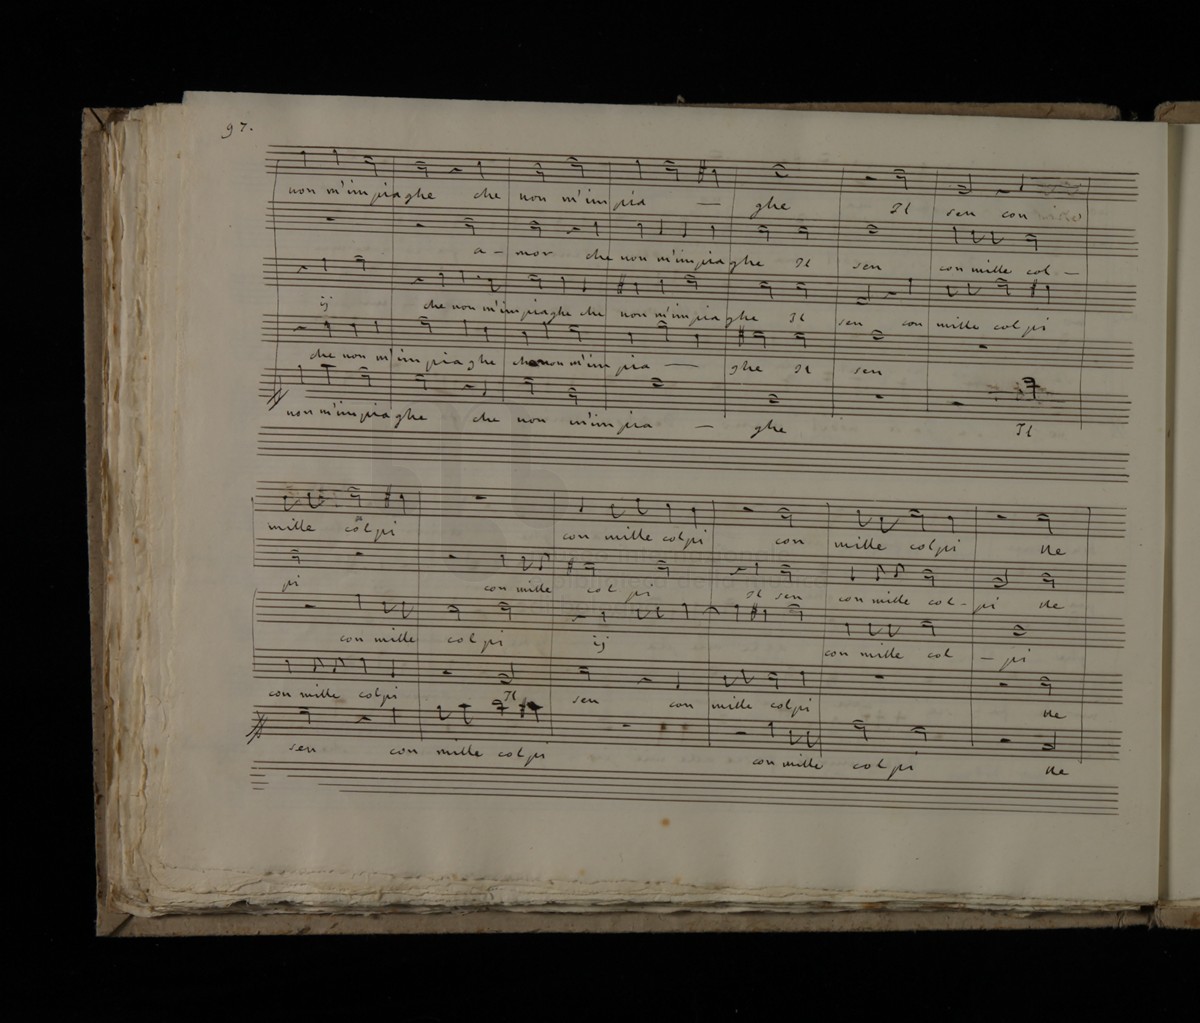 97.
non m'impiaghe che non m'impia — ghe Il sen con
a - mor che non m'impiaghe Il sen con mille col —
ij che non m'impiaghe che non m'impiaghe Il sen con mille colpi
che non m'impiaghe che non m'impia — ghe Il sen
non m'impiaghe che non m'impia — ghe Il
mille colpi con mille colpi con mille colpi Ne
pi con mille colpi Il sen con mille col - pi Ne
con mille colpi ij con mille col — pi
con mille colpi Il sen con mille colpi Ne
sen con mille colpi con mille colpi Ne